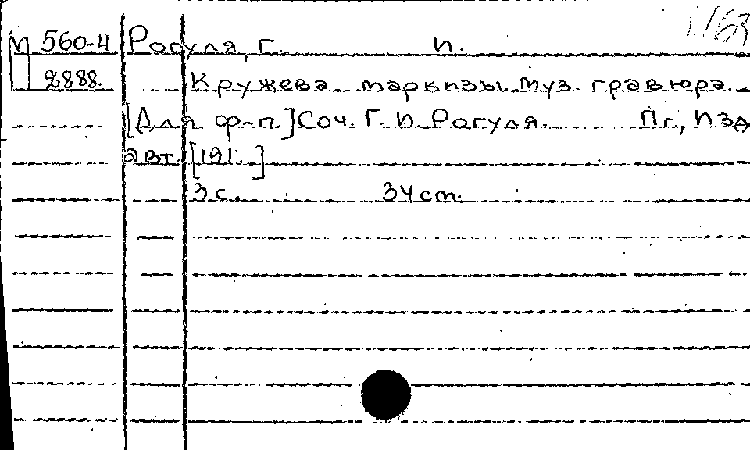 М 560-4 Рагуля, Г. И.
2888
Кружева маркизы. Муз. гравюра.
[Для ф-п.] Соч. Г. И. Рагуля. Пг., Изд.
авт. [191. ]
3 с. 34 ст.